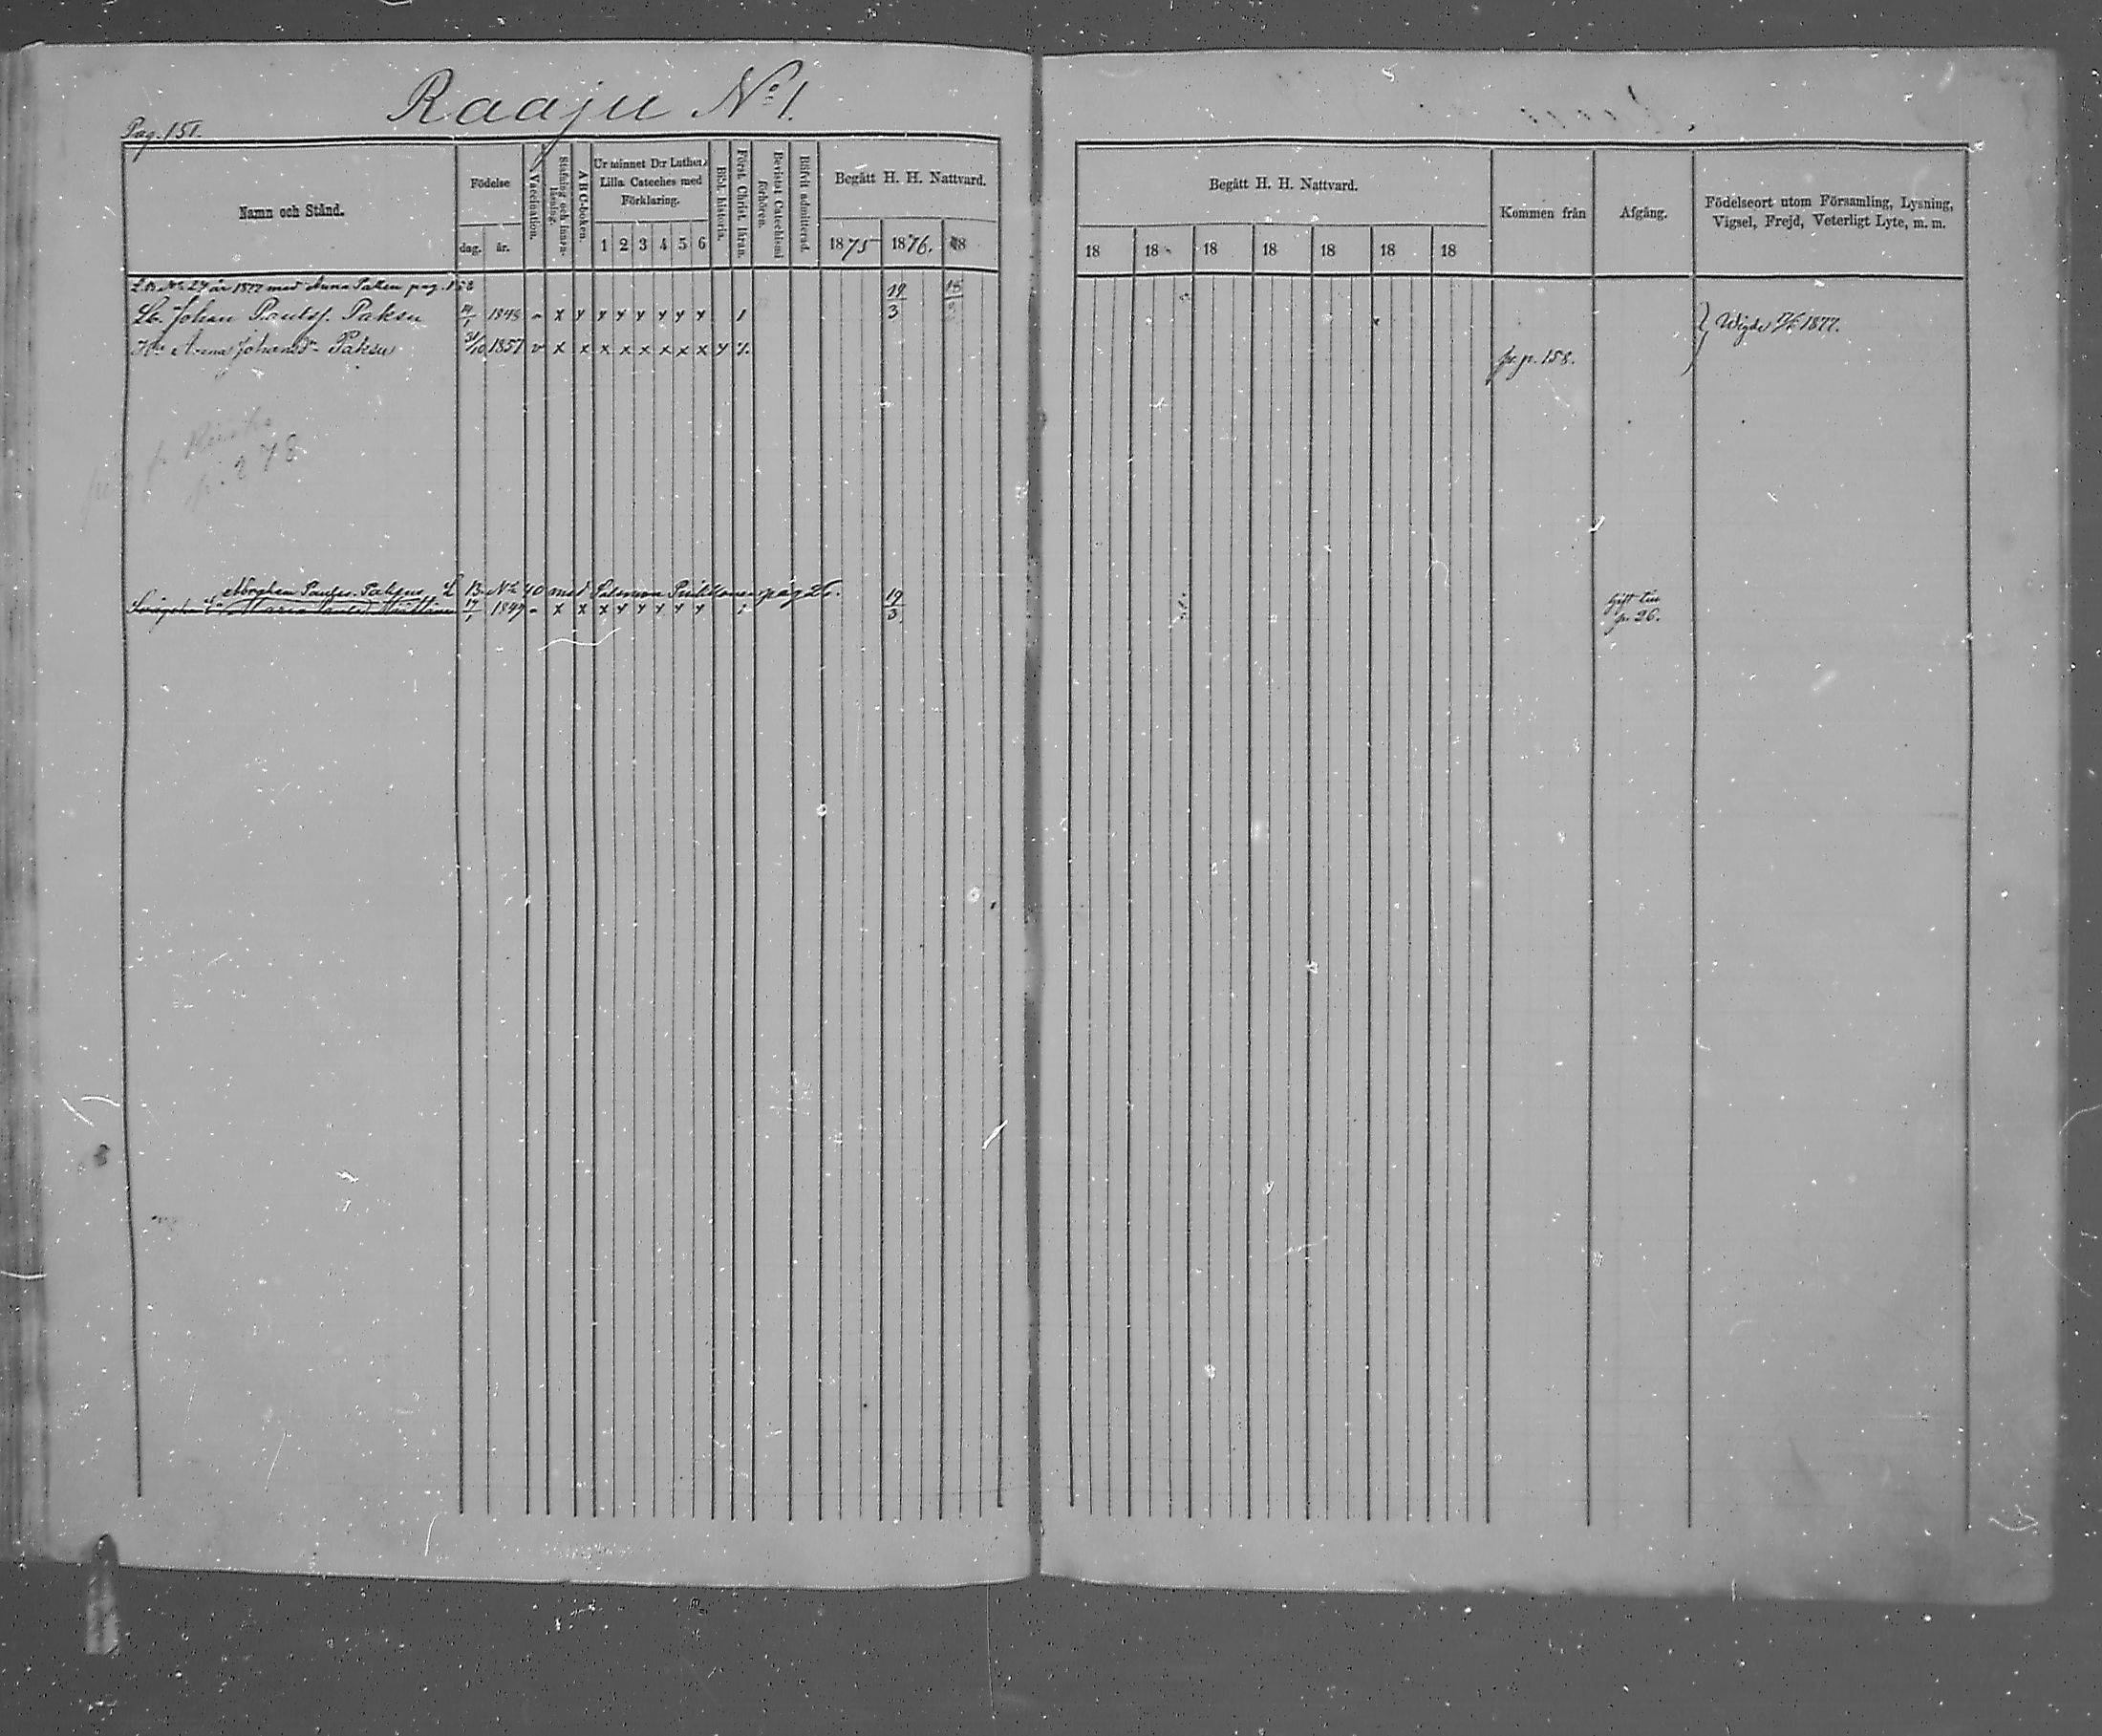 Raaju No 1.
Pag. 151.
Namn och Stånd.
Födelse
dag.
år.
Vaccination.
Stafning och innan-
läsning.
A B C-boken.
Ur minnet D:r Luthers
Lilla Cateches med
Förklaring.
1 2 3 4 5 6
Bibl. historia.
Först. Christ. läran.
Bevistat Catechismi
förhören.
Blifvit admitterad.
Begått H. H. Nattvard.
1875 1876. 18
L. B. No 27 år 1877 med Anna Paksu pag. 158
19/3
Lb. Johan Paulsf. Paksu 1848 x x x x x x x x 1
Hu Anna Johansd:r Paksu 31/10 1857 v x x x x x x x x x
p. 278
Paulss. L. B. No 40 med pag 26.
Maria 17/1 1849 x x x x x x x x
19/3
Begått H. H. Nattvard.
18 18 18 18 18 18 18
Kommen från
Afgång.
Födelseort utom Församling, Lysning,
Vigsel, Frejd, Veterligt Lyte, m. m.
Wigde 1877.
fr. p. 158.
gift till
p. 26.